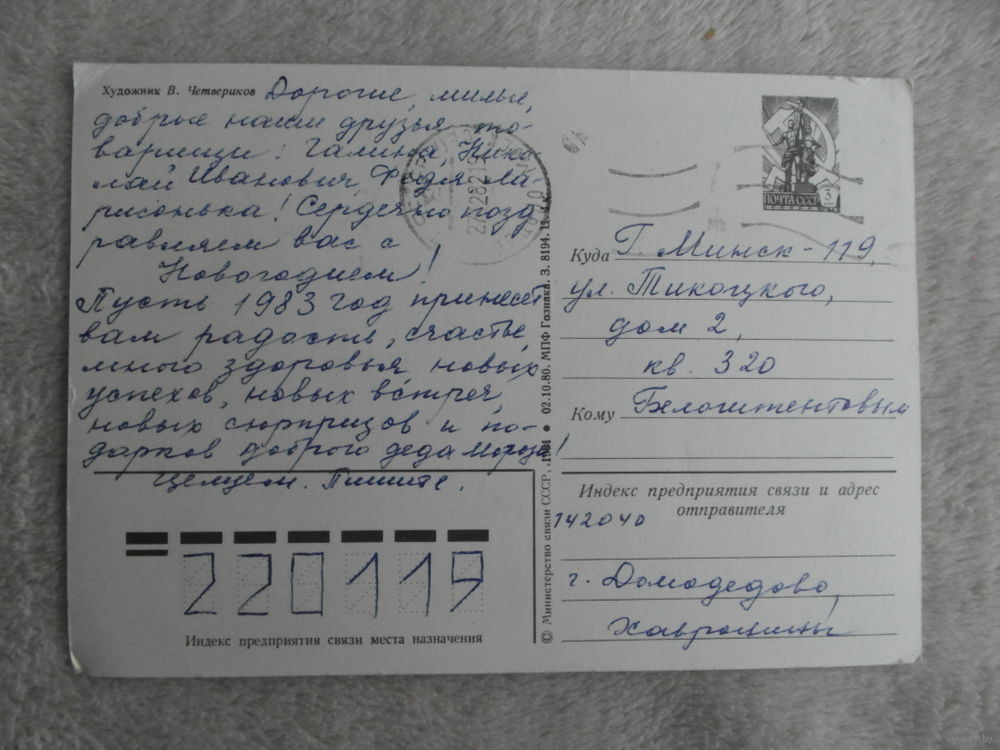 Художник В. Четвериков
Дорогие, милые,
добрые наши друзья-то-
варищи: Галина, Нико-
лай Иванович, Федя Ла-
рисонька! Сердечно позд
равляем вас с
Новогодием!
Пусть 1983 год принесёт
вам радость, счастье,
много здоровья, новых
успехов, новых встреч,
новых сюрпризов и по-
дарков доброго деда Мороза!
Целуем. Пишите.
220119
Индекс предприятия связи места назначения
© Министерство связи СССР, 1981 ● 02.10.80. МПФ Гознака. З. 8194.
ПОЧТА СССР 3
Куда Г. Минск-119,
ул. Тикоцкого,
дом 2,
кв. 320
Кому Белоштентовым
Индекс предприятия связи и адрес
отправителя
142040
г. Домодедово,
Хавронины